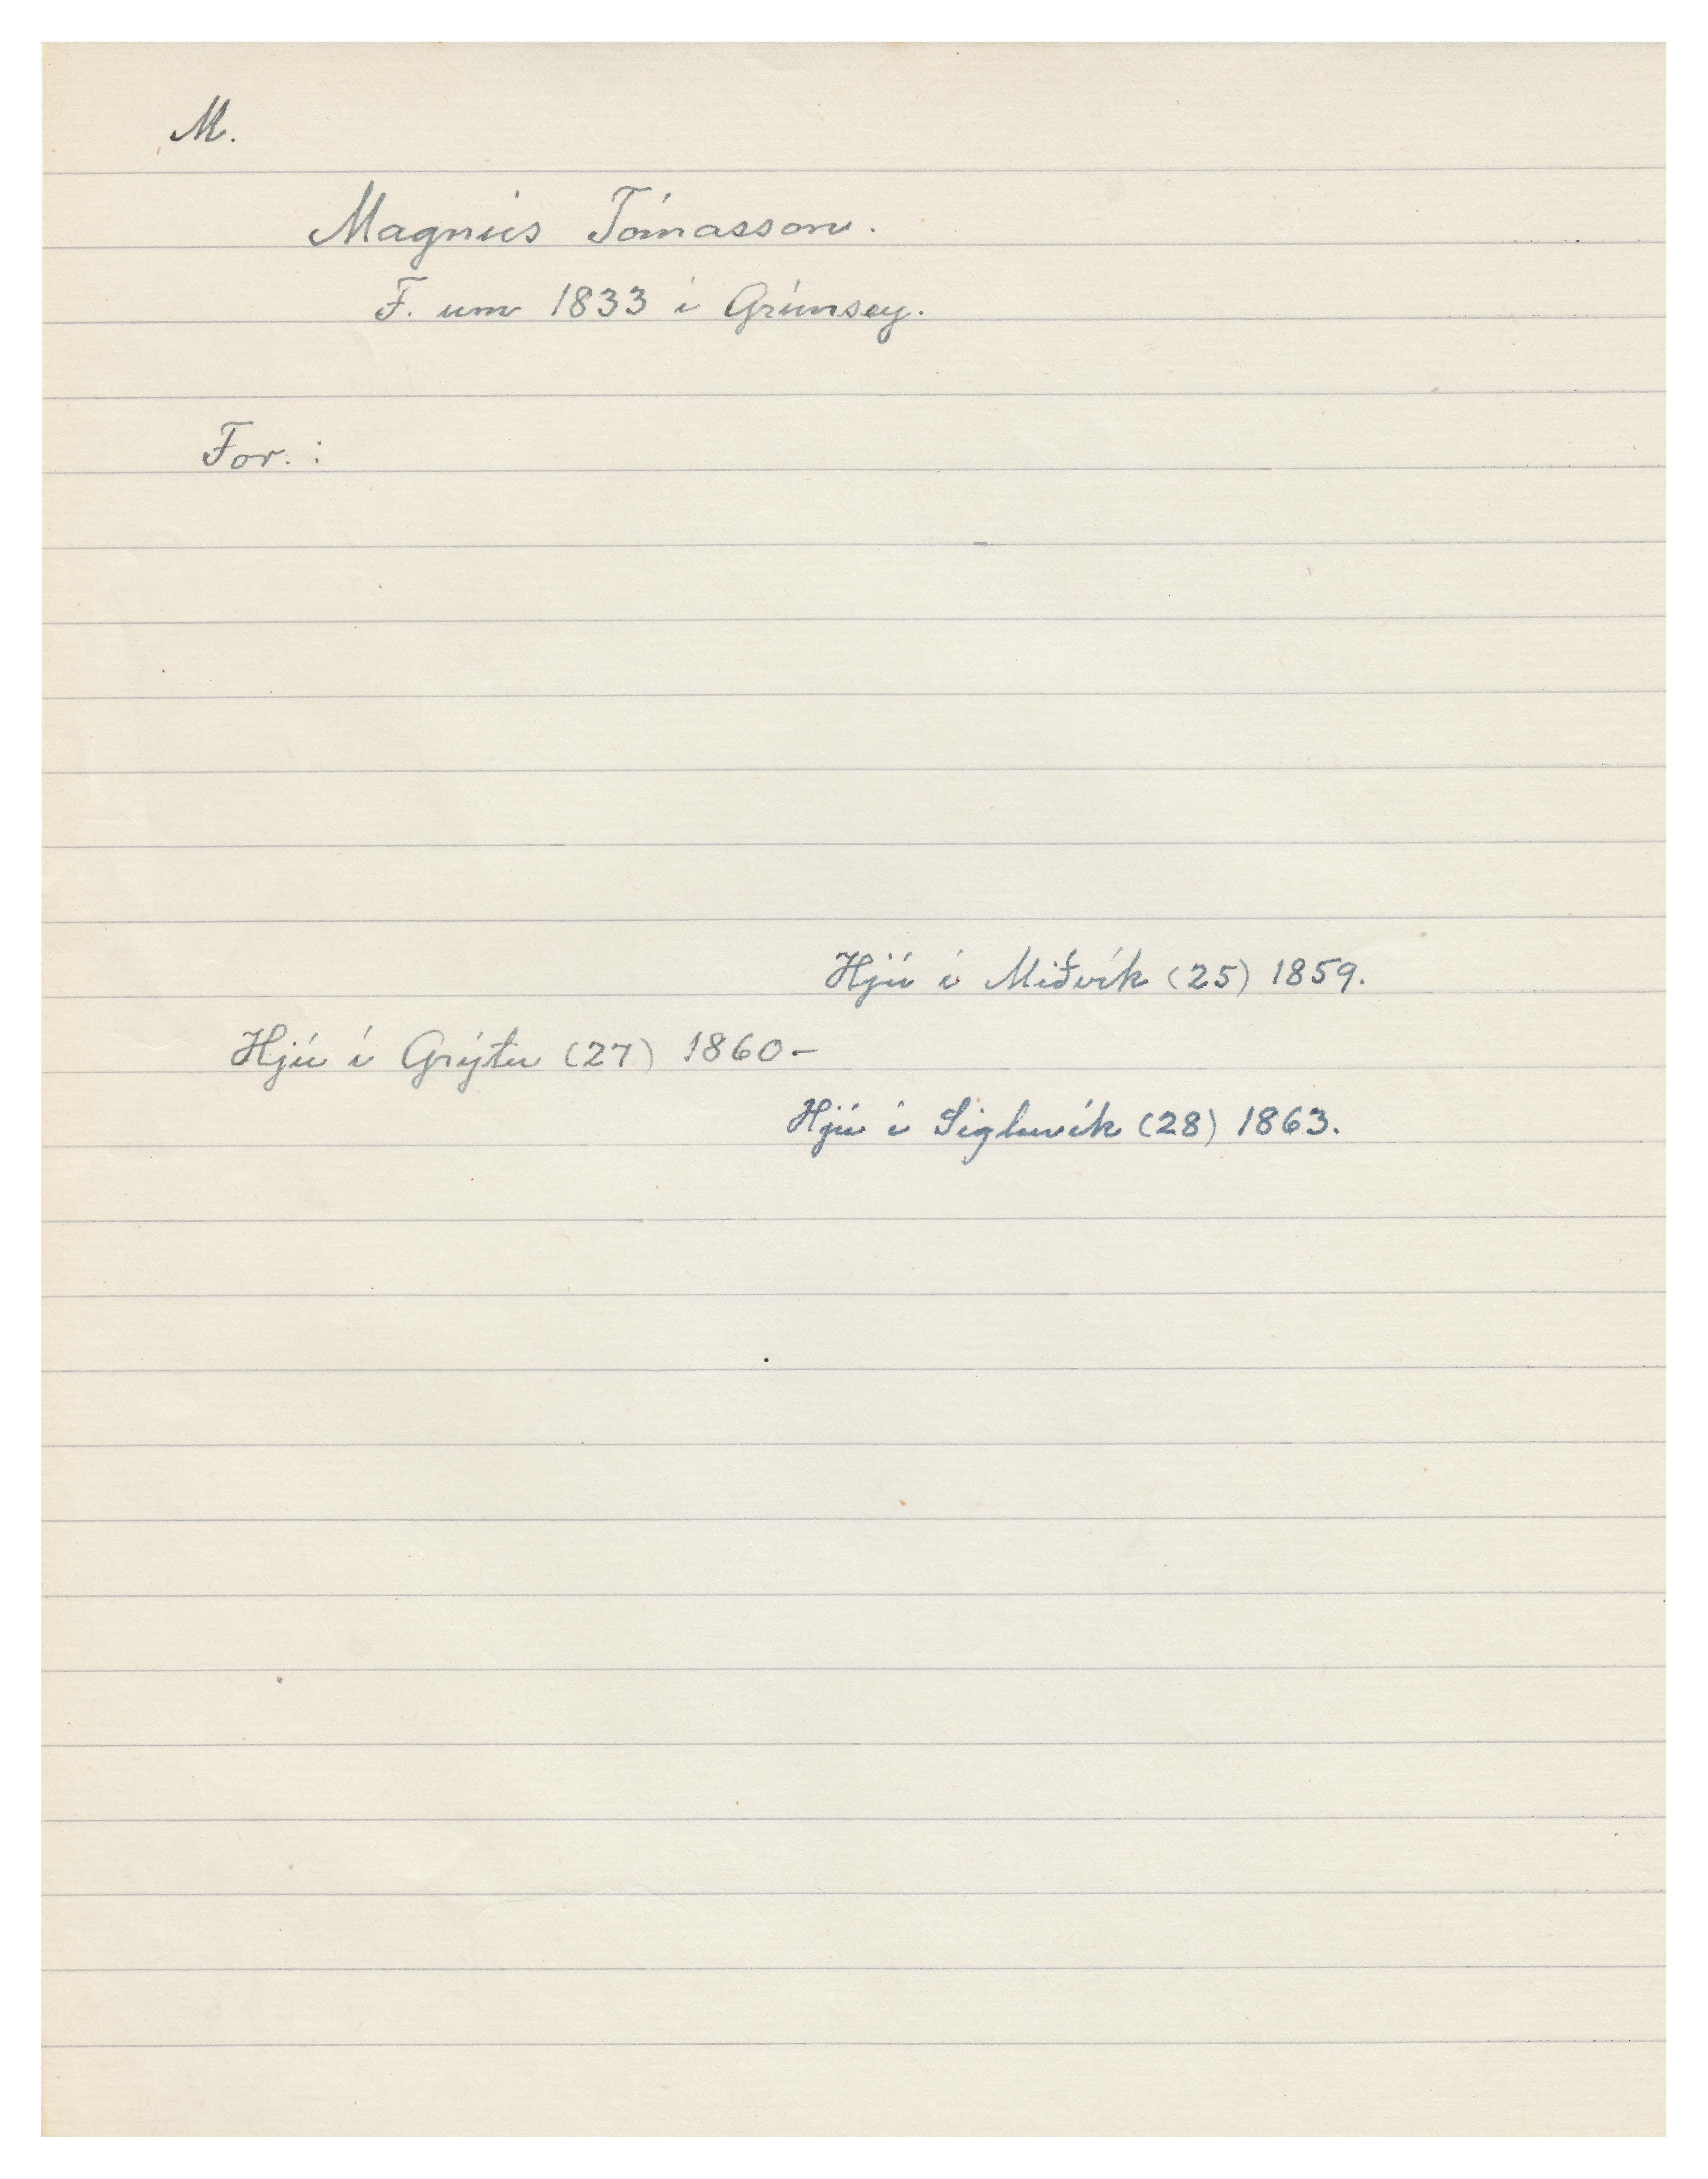 M.
Magnús Tómasson.
F. um 1833 í Grímsey.
For. :
Hjú í Miðvík (25) 1859.
Hjú í Grýtu (27) 1860-
Hjú í Sigluvík (28) 1863.